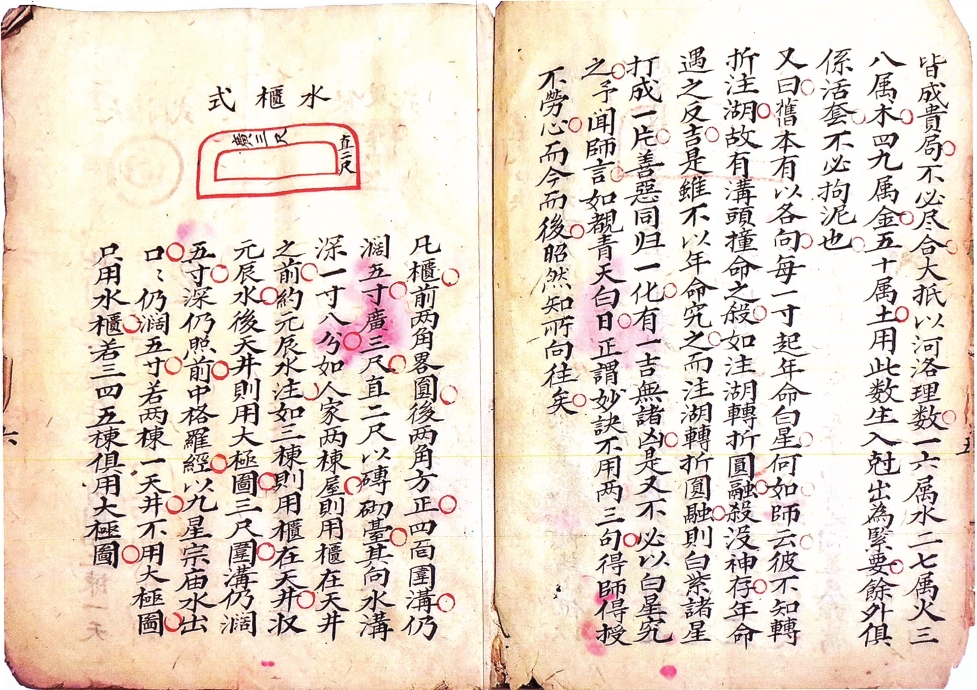 皆成貴局不必尽合大抵以河洛理数一六属水二七属火三
八属木四九属金五十属土用此数生入尅出為緊要餘外俱
係活套不必拘泥也
又曰舊本有以各句每一寸起年命白星何如師云彼不知轉
折注湖故有溝頭撞命之殺如注湖轉折圓融殺没神存年命
遇之反吉是雖不以年命究之而注湖轉折圓融則白紫諸星
打成一片善惡同归一化有一吉無諸凶是又不必以白星究
之予聞師言如覩青天白日正謂妙訣不用两三句得師得授
不勞心而今而後昭然知所向往矣
五
水櫃式
直二尺
三尺
凡櫃前两角畧圓後两角方正四面圍溝仍
濶五寸廣三尺直二尺以磚砌臺其向水溝
深一寸八分如人家两棟屋則用櫃在天井
之前約元辰水注如三棟則用櫃在天井收
元辰水後天井則用大極圖三尺圍溝仍濶
五寸深仍照前中格羅經以九星宗庙水出
口〻仍濶五寸若两棟一天井不用大極圖
只用水櫃若三四五棟俱用大極圖
六